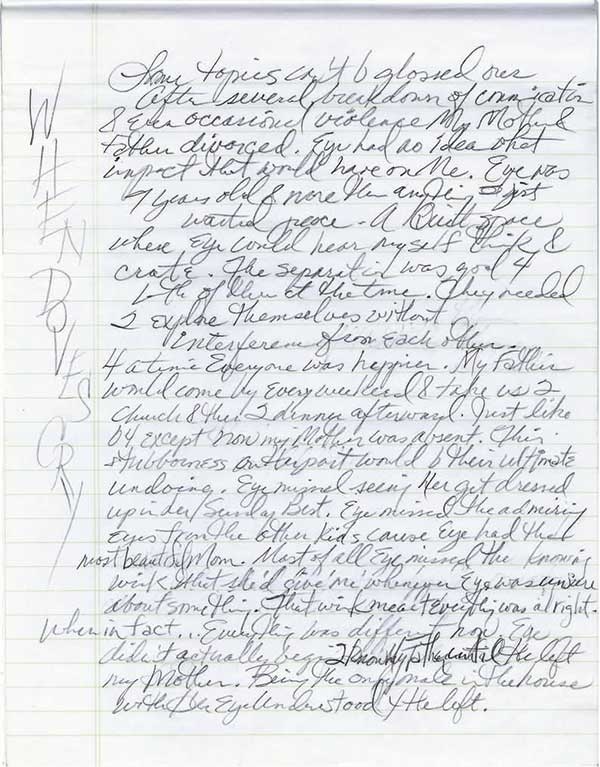 WHEN DOVES CRY
Some topics can't b glossed over
After several breakdown of communication
& even occasional violence My Mother &
Father divorced. Eye had no idea what
impact that would have on Me. Eye was
7 years old & more then anything I just
wanted peace - A Quiet space
where Eye could hear myself think &
create. The separation was good 4
both of them at the time. They needed
2 explore themselves without
interference from each other.
4 a time Everyone was happier. My Father
would come by every weekend & take us 2
church & then 2 dinner afterward. Just like
b4 except now my Mother was absent. This
stubborness on her part would b their ultimate
undoing. Eye missed seeing Her get dressed
up in her Sunday Best. Eye missed the admiring
eyes from the other kids cause Eye had the
most beautiful Mom. Most of all Eye missed the knowing
wink that she'd give me whenever Eye was unsure
about something. That wink meant everything was alright.
When in fact... Everything was different now. Eye
didn't actually begin 2 know my Father until He left
my Mother. Being the only male in the house
with her Eye Understood Y He left.